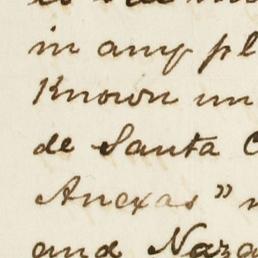 in any pl
Known un
de Santa C
Anexas"
and Naza